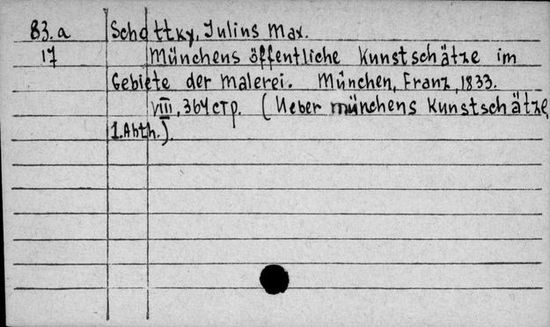 83.a Schottky, Julius Max.
17 Münchens öffentliche Kunstschätze im
Gebiete der Malerei. München, Franz, 1833.
VIII, 364 стр. (Ueber münchens Kunstschätze,
1.Abth.).